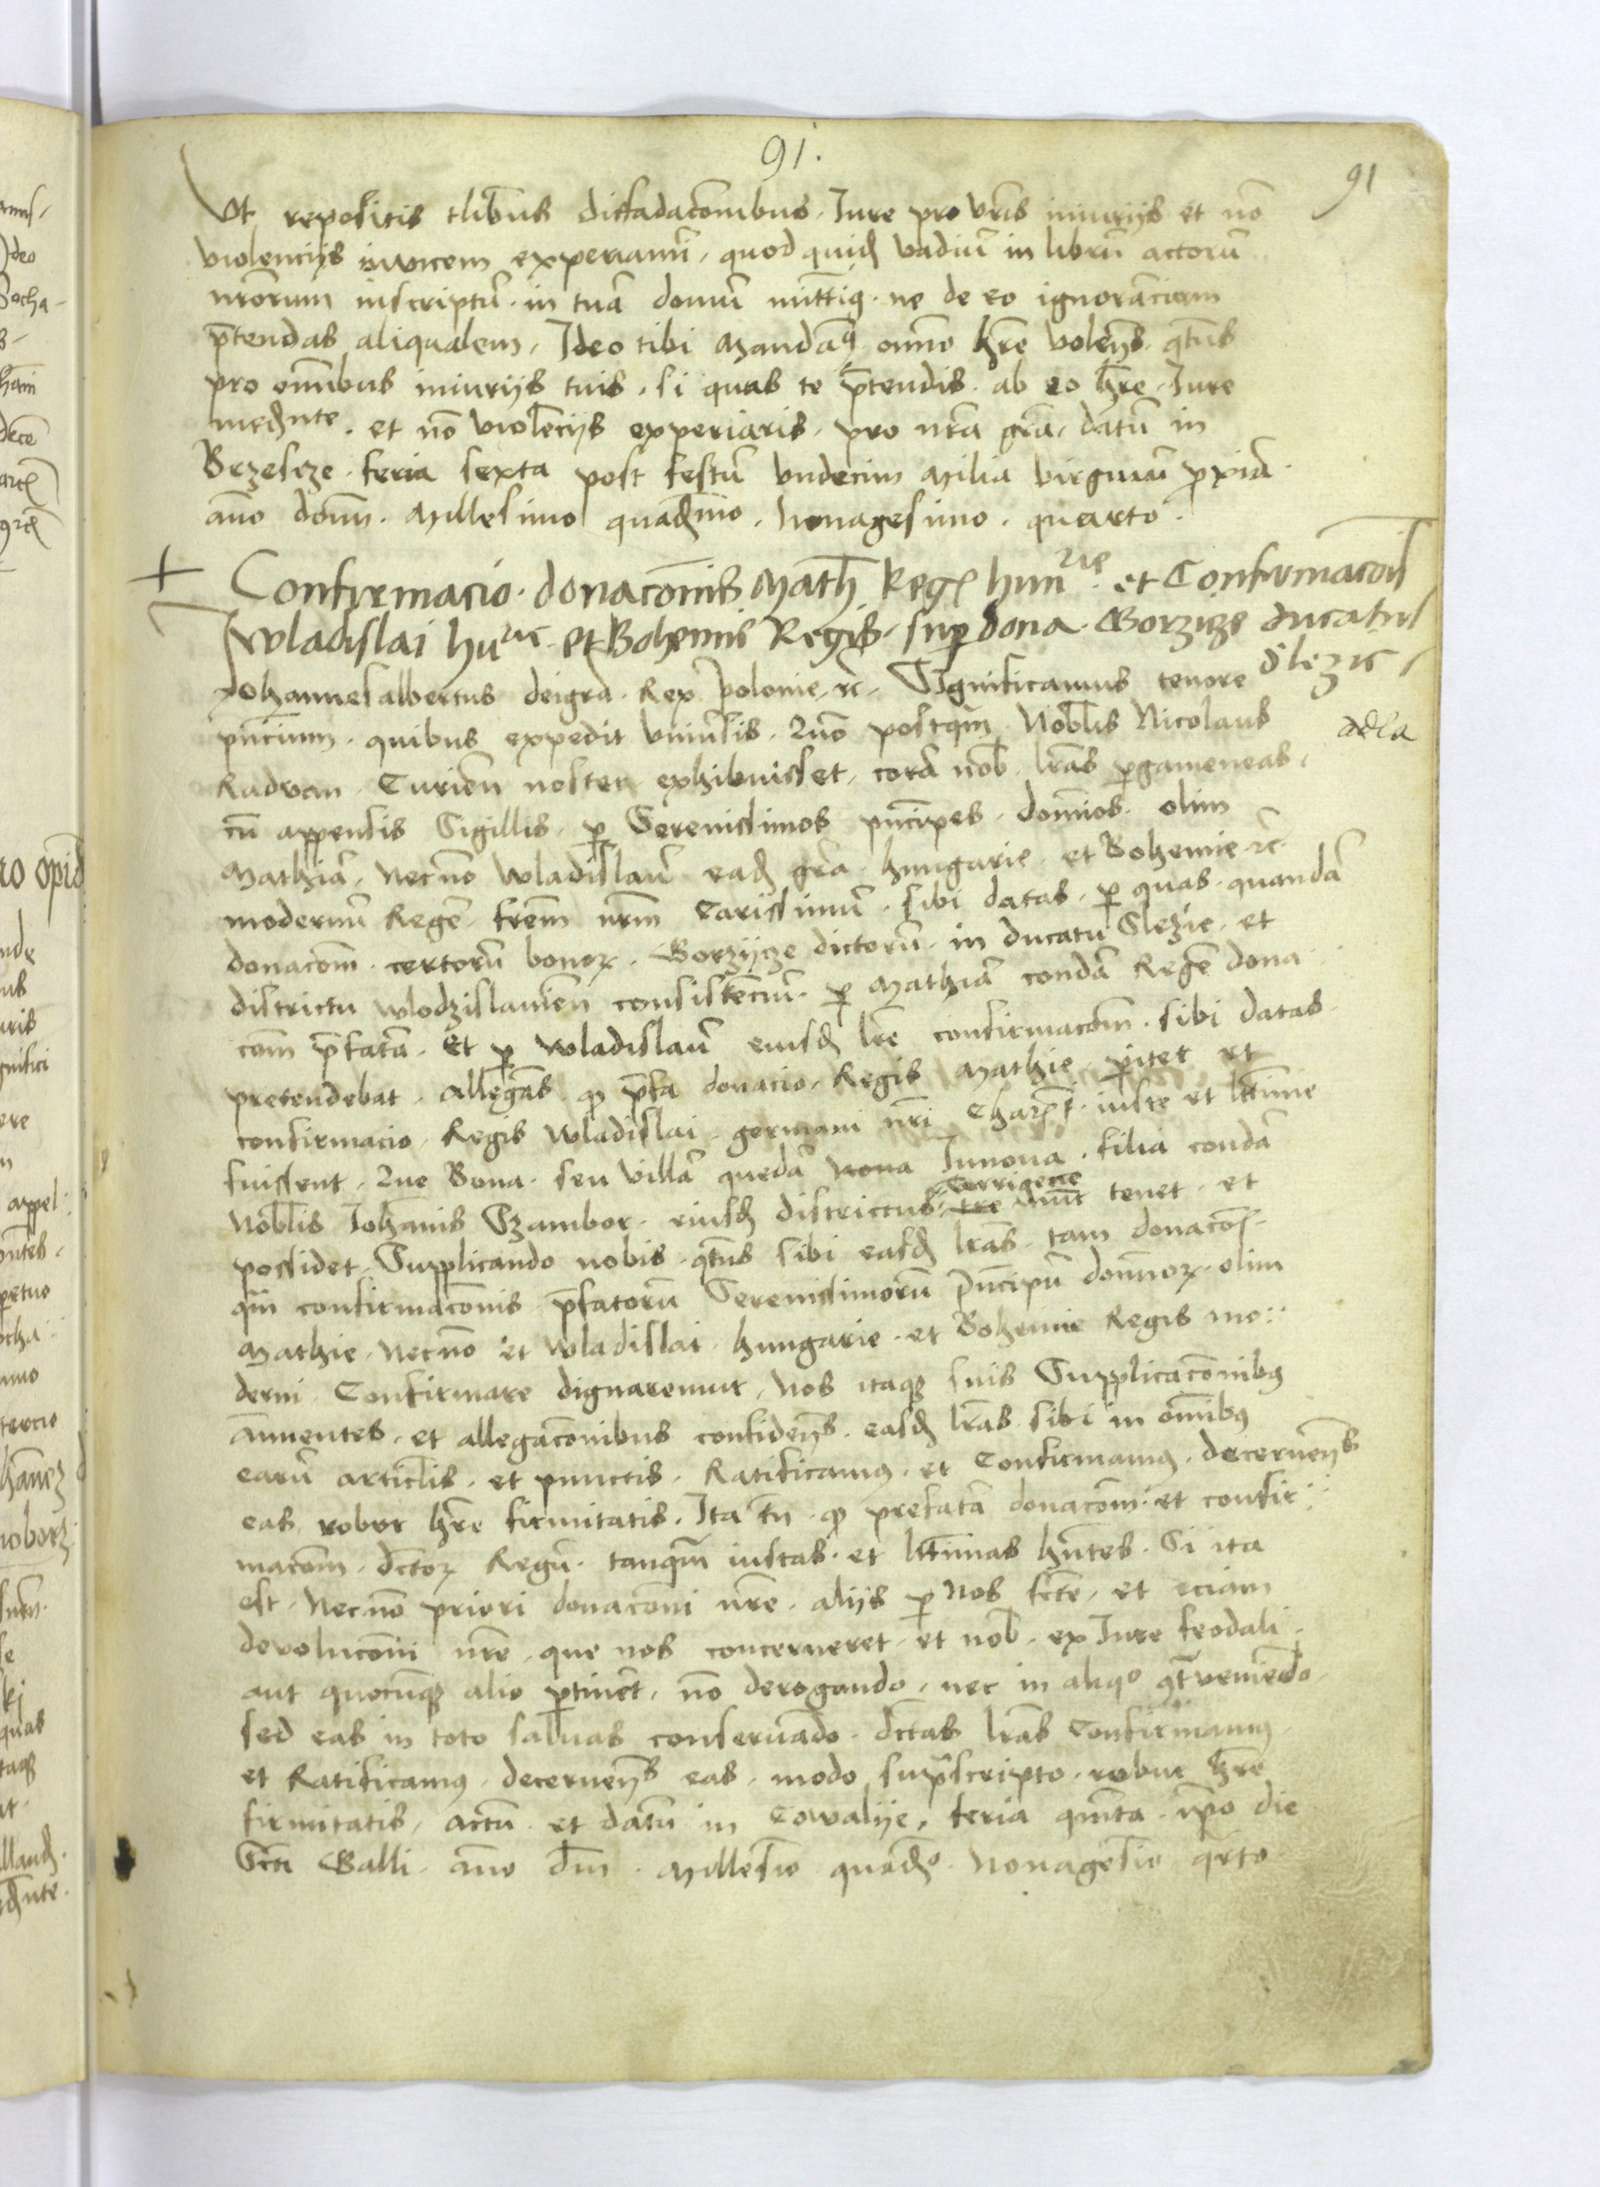 91.
91
Ut repositis tlibus diffadacõnibus. Iure pro vr̃is iniuriis et nõ
violenciis invicem experiamĩ, quod quid̃ vadiũ in librũ actorũ
nr̃orum inscriptũ. in tuã domũ mittiq̃. ne de eo ignorãciam
p̃tendas aliqualem, Ideo tibi Mandãq̃ omño hr̃e volen̄s. q̃t̃ns
pro om̃ibus iniuriis tuis. si quas te p̃tendis. ab eo hr̃e. Iure
med̃nte. et nõ violẽciis experiaris. pro nr̃a grã, datũ in
Brzescze. feria sexta post festũ undecim Milia virginũ p̃xiã
ãno domĩ. Millesimo quad̃mo. Nonagesimo. quarto.
+ Confirmacio. donacõnis Math̃ Reg̃ hun^rie et Confirmacõn̄
Wladislai hu^rie. et Bohemie Regis. sup̃ bona. Gorzicze ducatus
Slezie
Johannes albertus deigrã. Rex Polonie, ꝛc̃, Significamus tenore
adla
pñcium. quibus expedit uniṽsis. Quõ postq̃m Nobl̃is Nicolaus
Radvan. Curieñ noster exhibuisset, corã nob̃. lr̃as p̃gameneas,
cũ appensis Sigillis, p̃ Serenissimos pñcipes. dom̃ios. olim
Mathiã, Necnõ Wladislaũ ead̃ grã. hungarie. et Bohemie ꝛc̃
modernũ Regẽ. fr̃em nr̃m Carissimũ. sibi datas. p̃ quas. quandã
donacõm. certorũ bonoꝝ. Gorziicze dictorũ. in ducatu Slezie, et
districtu Wlodzislavieñ consistẽciũ. p̃ Mathiã condã Regẽ dona
com p̃fatã. Et p̃ Wladislaũ eiusd̃ lr̃e confirmacõm. sibi datas.
pretendebat. allegãs. q̃ p̃fa donacio, Regis Mathie p̃itet et
confirmacio, Regis Wladislai. germani nr̃i Char̃. iuste et ltt̃ime
fuissent. Que Bona. seu villã quedã Nova Iunova. filia condã
Corrigere
Nobl̃is Ioh̃anis Szambor. eiusd̃ districtus. tre nũc tenet. et
possidet. Supplicando nobis. q̃t̃ns sibi easd̃ lr̃as. tam donacõs̃
q̃m confirmacõnis p̃fatorũ Serenissimorũ Pñcipũ domĩoꝝ. olim
Mathie, Necnõ et Wladislai. hungarie. et Bohemie Regis mo:
derni. Confirmare dignaremur, Nos itaq̃ suis Supplicacõnibq̃
ãnuentes, et allegacõnibus confiden̄s. easd̃ lr̃as. sibi in om̃ibq̃
earũ articl̃is. et punctis. Ratificamq̃. et Confirmamq̃. decernen̄s
eas robor hr̃e firmitatis. Ita tñ q̃ prefatã donacõm. et confir:
macom. dc̃toꝝ Regũ. tanq̃m iustas. et ltt̃imas hñtes. Si ita
est. Necnõ priori donacõni nr̃e. aliis p̃ Nos fc̃te, et eciam
devolucõni nr̃e. que nos concerneret. et nob̃. ex Iure feodali.
aut quocũq̃ alio p̃tinẽt, nõ derogando, nec in aliqº 9t̃veniẽdo.
sed eas in toto salvas conservãdo. dc̃tas lr̃as Confirmamq̃,
et Ratificamq̃. decernen̄s eas. modo sup̃scripto. robur hr̃e
firmitatis, actũ et datũ in Cowaliie, feria quĩta. ip̃o die
Sc̃ti Galli. ãno dñi. Millesĩo quad̃º. Nonagesĩo q̃rto